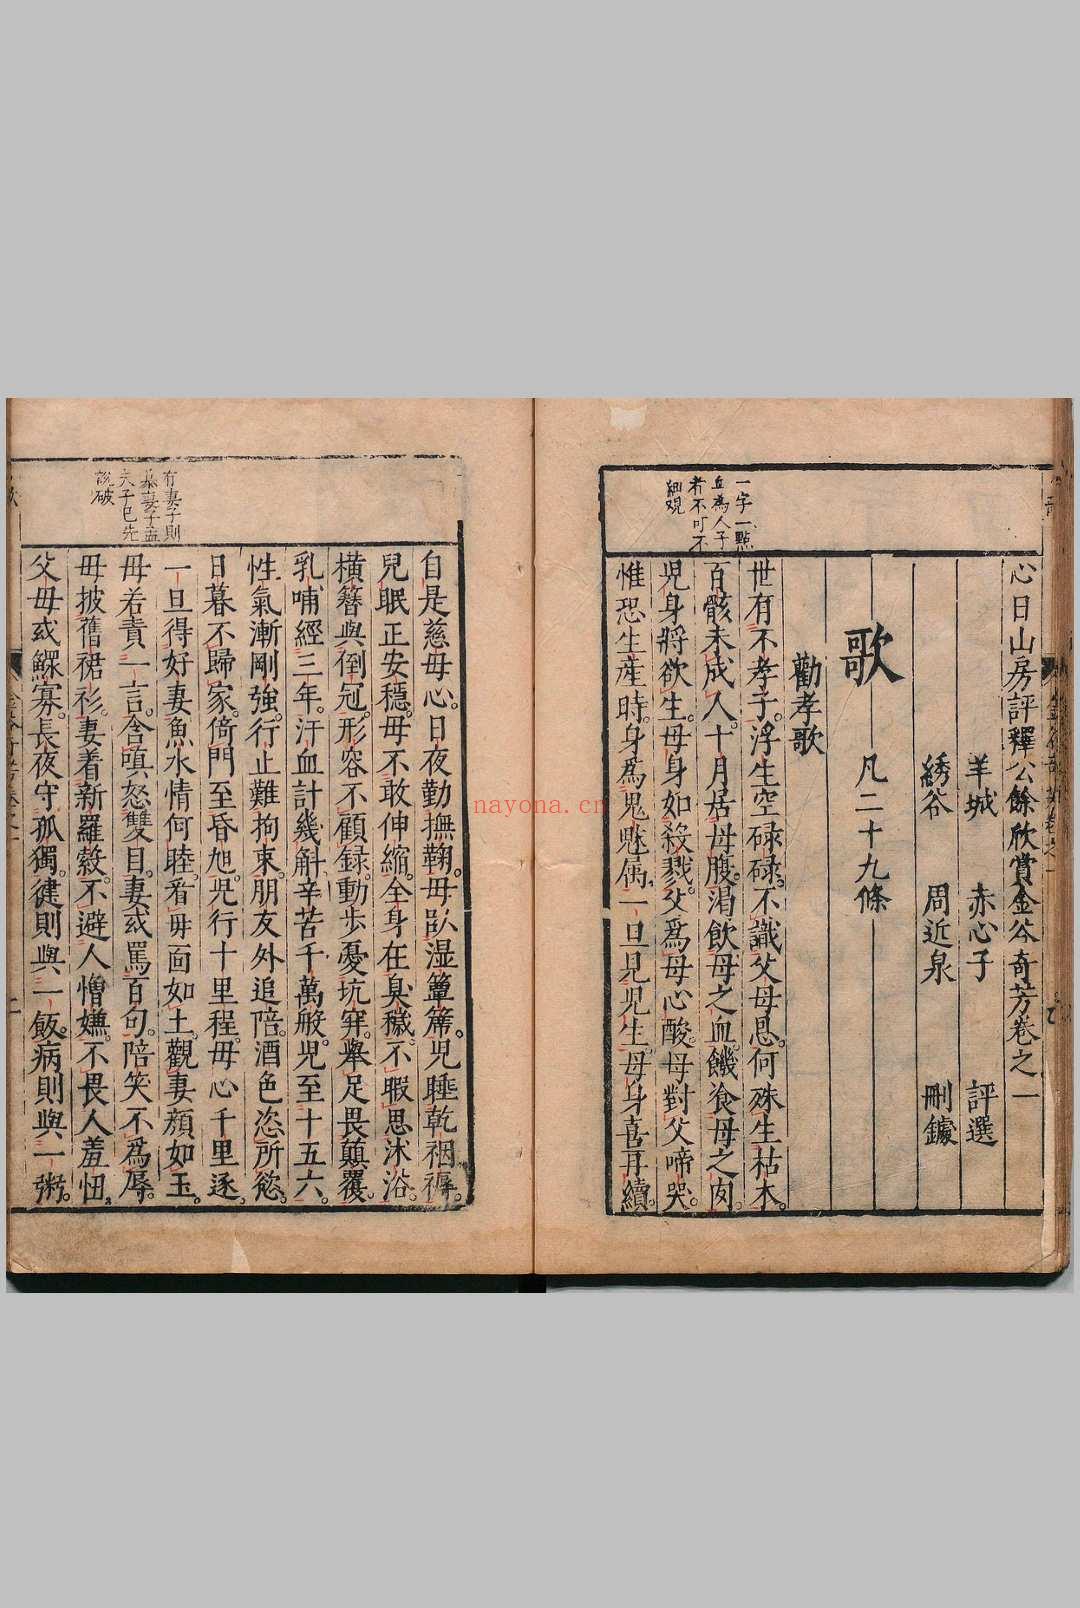 心日山房評釋公餘欣賞金谷奇芳卷之一
羊城　赤心子　評選
綉谷　周近泉　刪鐻
歌　凡二十九條
勸孝歌
一字一點
血為人子
者不可不
細覌
世有不孝子。浮生空碌碌。不識父母恩。何殊生枯木。
百骸未成人。十月居母腹。渴飲母之血。饑飡母之肉。
児身將欲生。母身如殺戮。父爲母心酸。母對父啼哭。
惟恐生産時。身爲鬼魅属。一旦見児生。母身喜再續。
自是慈母心。日夜勤撫鞠。母臥湿簟席。児睡乾裀褥。
兒眠正安穩。母不敢伸縮。全身在臭穢。不暇思沐浴。
橫簪與倒冠。形容不顧録。動歩憂坑穽。舉足畏顛覆。
乳哺經三年。汗血計幾斛。辛苦千萬般。児至十五六。
性氣漸剛強。行止難拘束。朋友外追陪。酒色恣所慾。
日暮不歸家。倚門至昏旭。児行十里程。母心千里逐。
有妻子則
慕妻子孟
夫子已先
說破
一旦得好妻。魚水情何睦。看母面如土。觀妻顏如玉。
母若責一言。含嗔怒雙目。妻或罵百句。陪笑不爲辱。
母披舊裙衫。妻着新羅縠。不避人憎嫌。不畏人羞忸。
父母或鰥寡。長夜守孤獨。健則與一飯。病則與一粥。